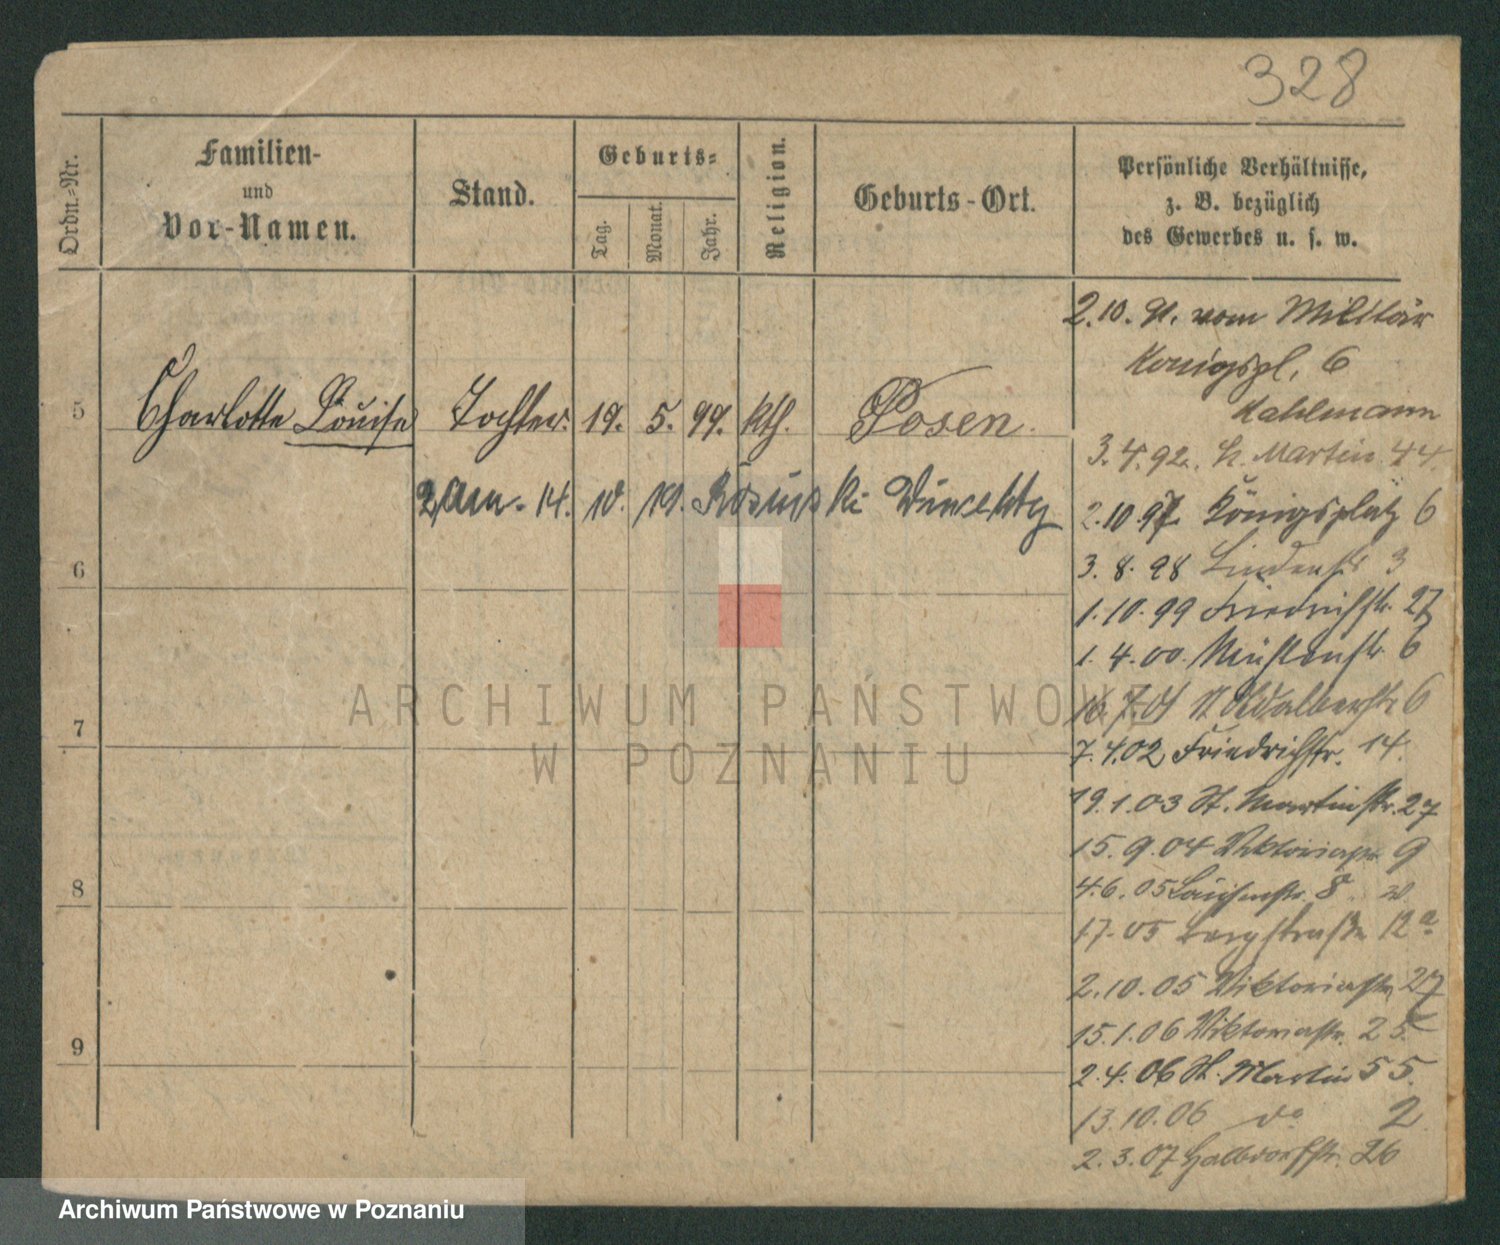 328
Ordn.-Nr.
Familien-
und
Vor-Namen.
Stand.
Geburts-
Tag.
Monat.
Jahr.
Religion.
Geburts-Ort.
Persönliche Verhältnisse,
z. B. bezüglich
des Gewerbes u. s. w.
2.10.91. vom Militär
Königspl. 6
Kahlmann
5 Charlotte Louise Tochter. 19. 5. 99. kth. Posen.
3.4.92. St. Martin 44
14. 10. 19. Wincenty
2.10.97. Königsplatz 6
3.8.98 Lindenstr 3
6
1.10.99 Friedrichstr. 27
1.4.00. Mühlenstr. 6
16.7.01 St Adalbertstr 6
7
7.4.02 Friedrichstr. 14.
19.1.03 St. Martinstr. 27
15.9.04 Viktoriastr. 9
8
4.6.05 Louisenstr. 8
1.7.05 Bergstraße 12a
2.10.05 Viktoriastr. 27
15.1.06 Viktoriastr. 25
9
2.4.06 St. Martin 55.
13.10.06 do 2
2.3.07 Halbdorfstr. 26
ARCHIWUM PAŃSTWOWE
W POZNANIU
Archiwum Państwowe w Poznaniu